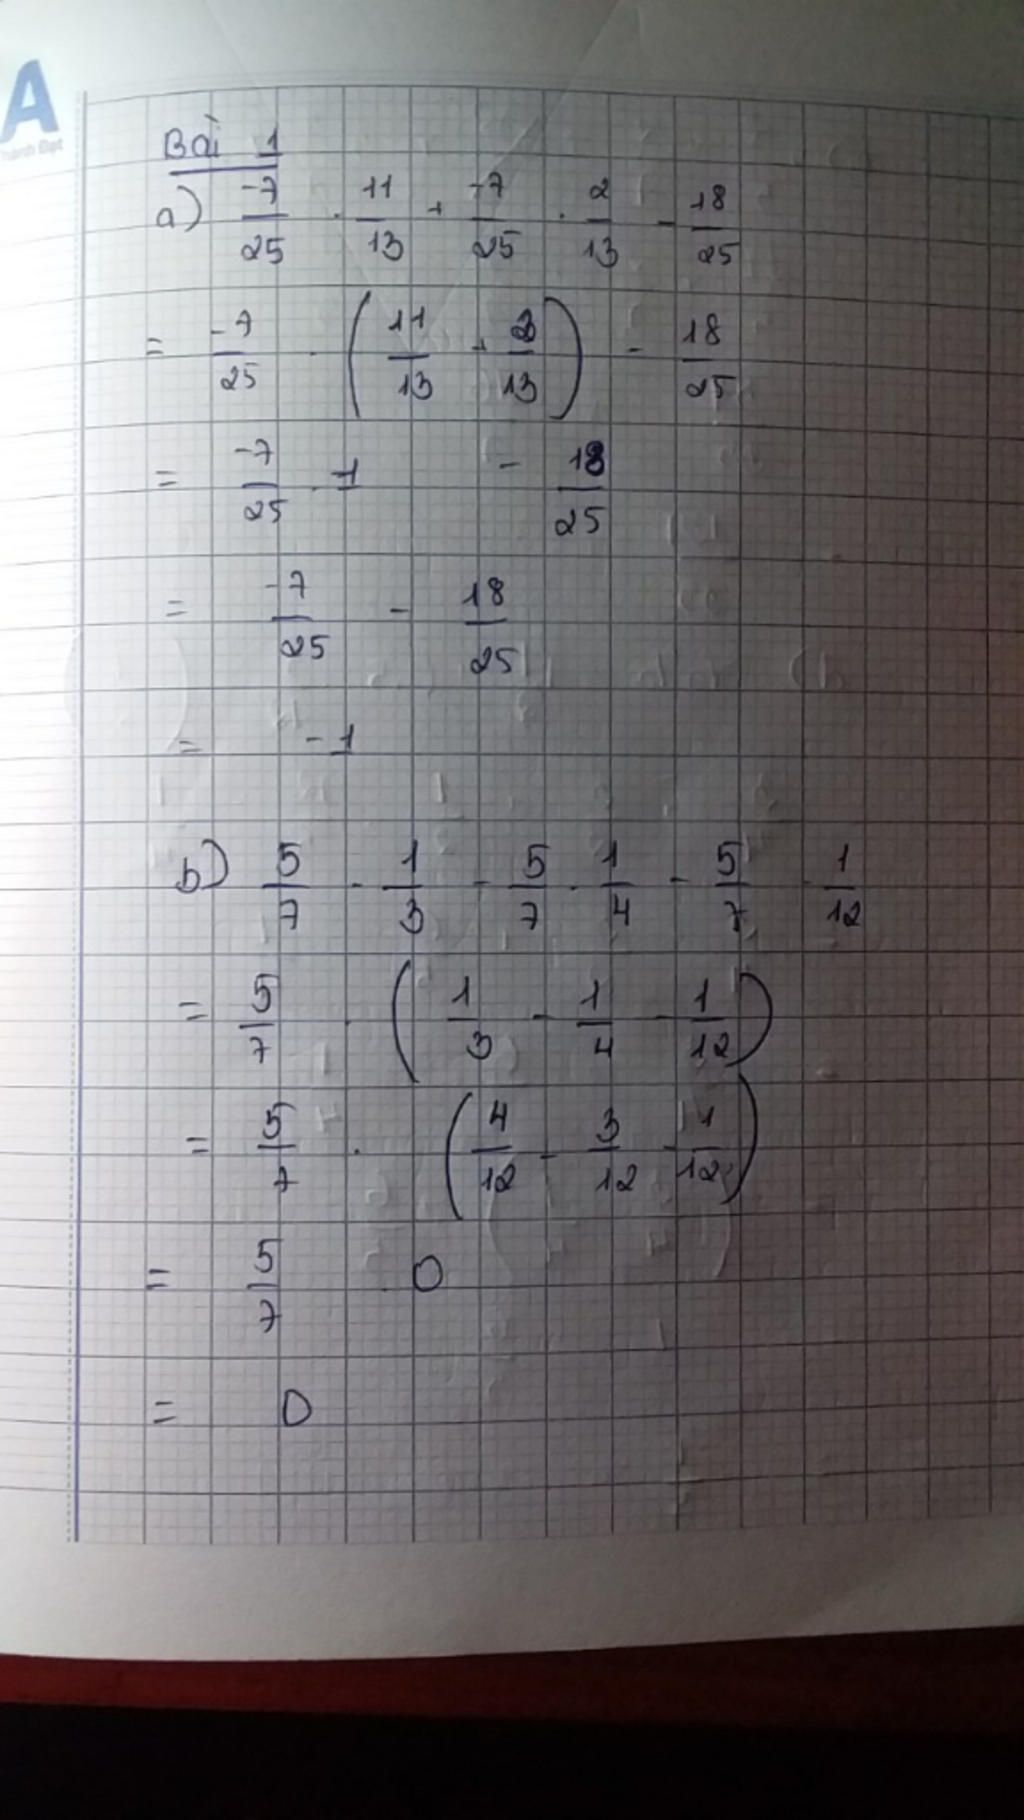 A
Thành Đạt
Bài 1
a) -7/25 . 11/13 + -7/25 . 2/13 - 18/25
= -7/25 . (11/13 + 2/13) - 18/25
= -7/25 . 1 - 18/25
= -7/25 - 18/25
= -1
b) 5/7 . 1/3 - 5/7 . 1/4 - 5/7 . 1/12
= 5/7 . (1/3 - 1/4 - 1/12)
= 5/7 . (4/12 - 3/12 - 1/12)
= 5/7 . 0
= 0